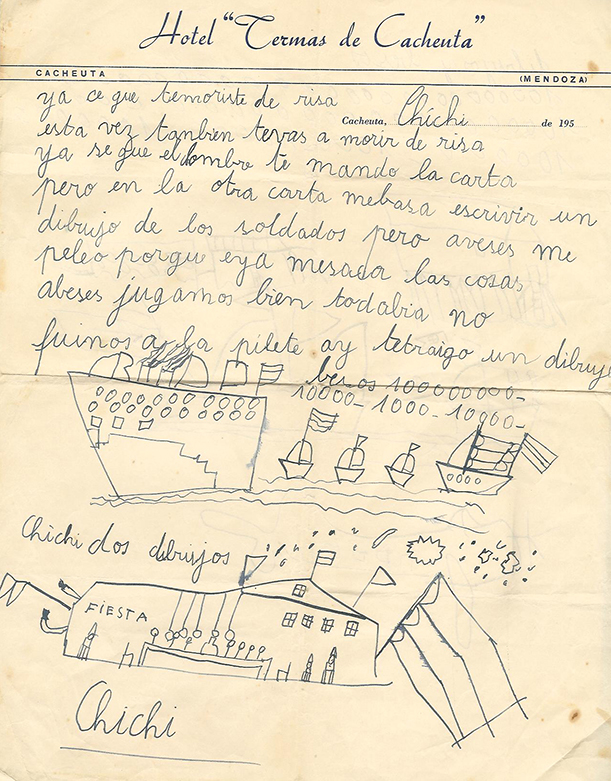 Hotel "Termas de Cacheuta"
CACHEUTA
(MENDOZA)
ya ce que temoriste de risa
Cacheuta, Chichi de 195
esta vez tanbien tevas a morir de risa
ya se que el ombre te mando la carta
pero en la otra carta mebasa escrivir un
dibujo de los soldados pero aveses me
peleo porque eya mesaca las cosas
abeses jugamos bien todabia no
fuinos a la pilete ay tetraigo un dibujo
besos 100000000-
10000- 1000- 10000-
Chichi dos dibujos
FiESTA
Chichi